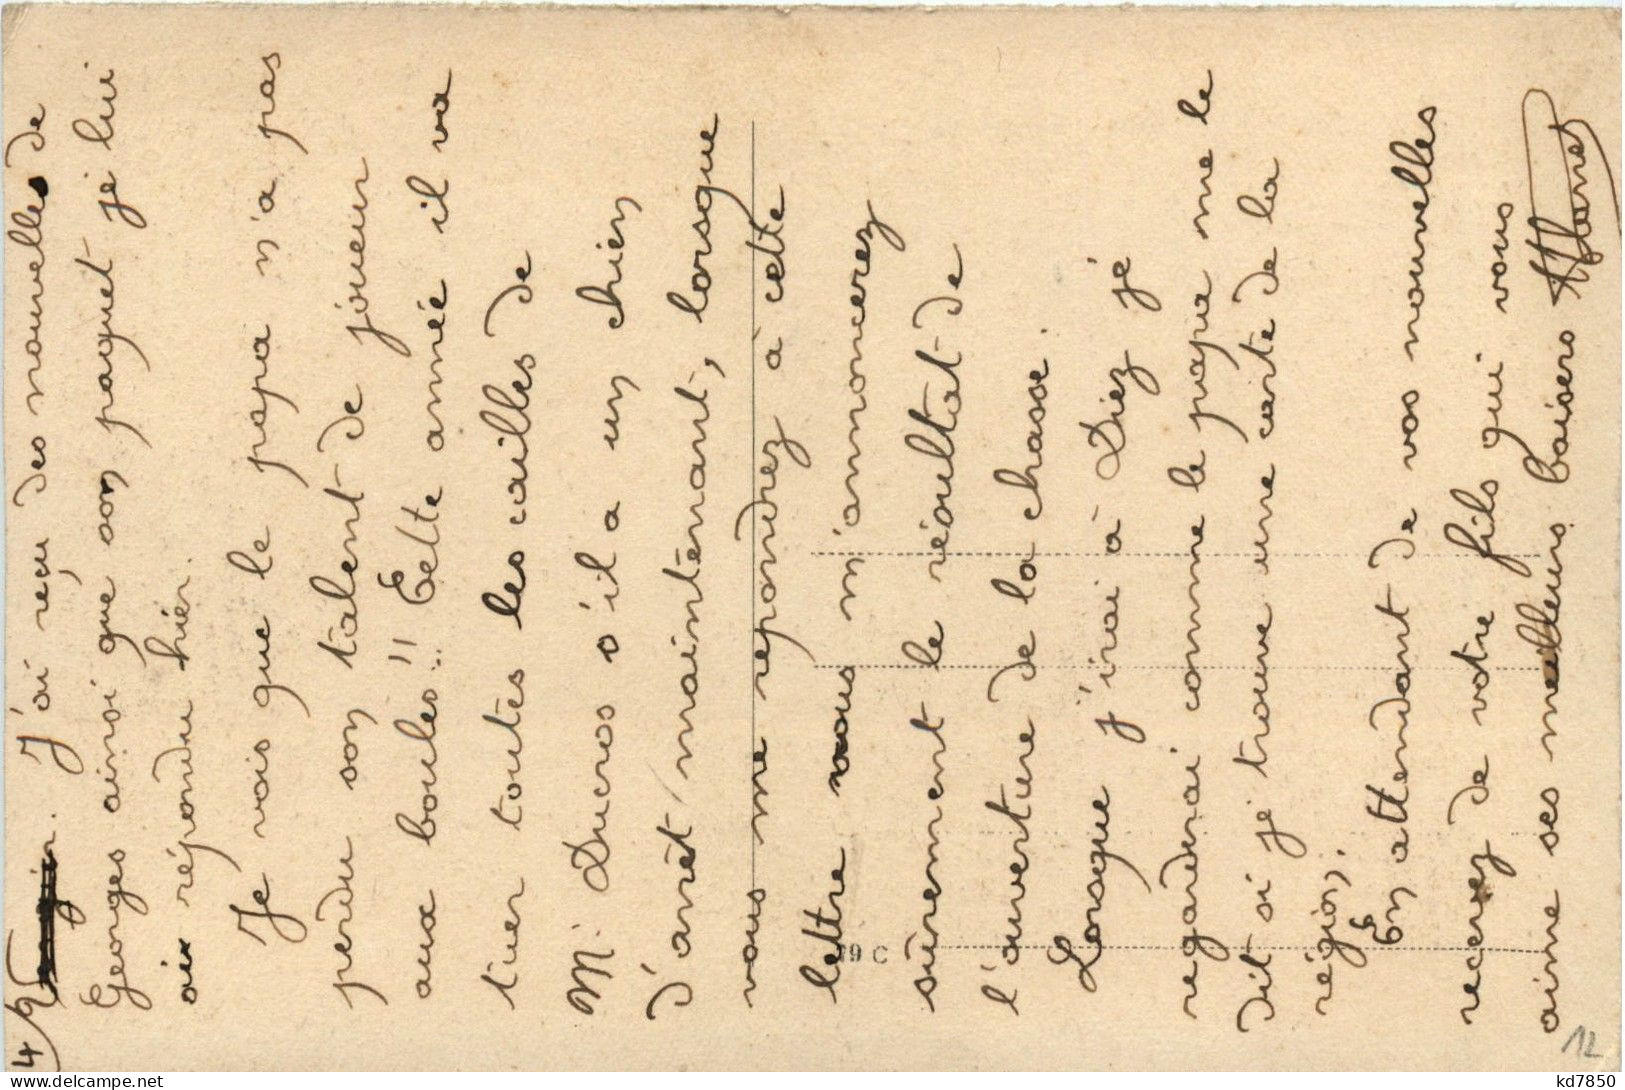 4/ J'ai reçu des nouvelles de
Georges ainsi que son paquet je lui
ai répondu hier.
Je vois que le papa n'a pas
perdu son talent de joueur
aux boules!! Cette année il va
tuer toutes les cailles de
M. Ducros s'il a un chien
d'arrêt maintenant, lorsque
vous me repondrez à cette
lettre vous m'annoncerez
sûrement le résultat de
l'ouverture de la chasse.
Lorsque j'irai à Diez je
regardrai comme le papa me le
dit si je trouve une carte de la
région;
En attendant de vos nouvelles
recevez de votre fils qui vous
aime ses meilleurs baisers
99 C
12
kd7850